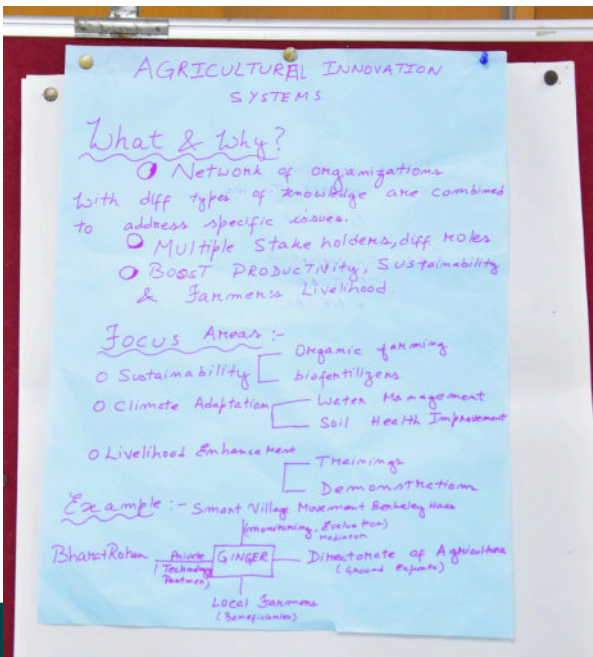 AGRICULTURAL INNOVATION
SYSTEMS
What & Why?
Network of organizations
with diff types of knowledge are combined
to address specific issues.
Multiple Stake holders, diff roles
BOOST PRODUCTIVITY, Sustainability
& Farmers Livelihood.
Focus Areas :-
Organic farming
Sustainability
biofertilizers
Climate Adaptation
Water Management
Soil Health Improvement
Livelihood Enhancement
Trainings
Demonstrations
Example :- Smart Village Movement Berkeley Haas
(monitoring, Evaluation)
Mediator
BharatRohan Private GINGER Directorate of Agriculture
(Technology Partner)
(Ground Experts)
Local Farmers
(Beneficiaries)